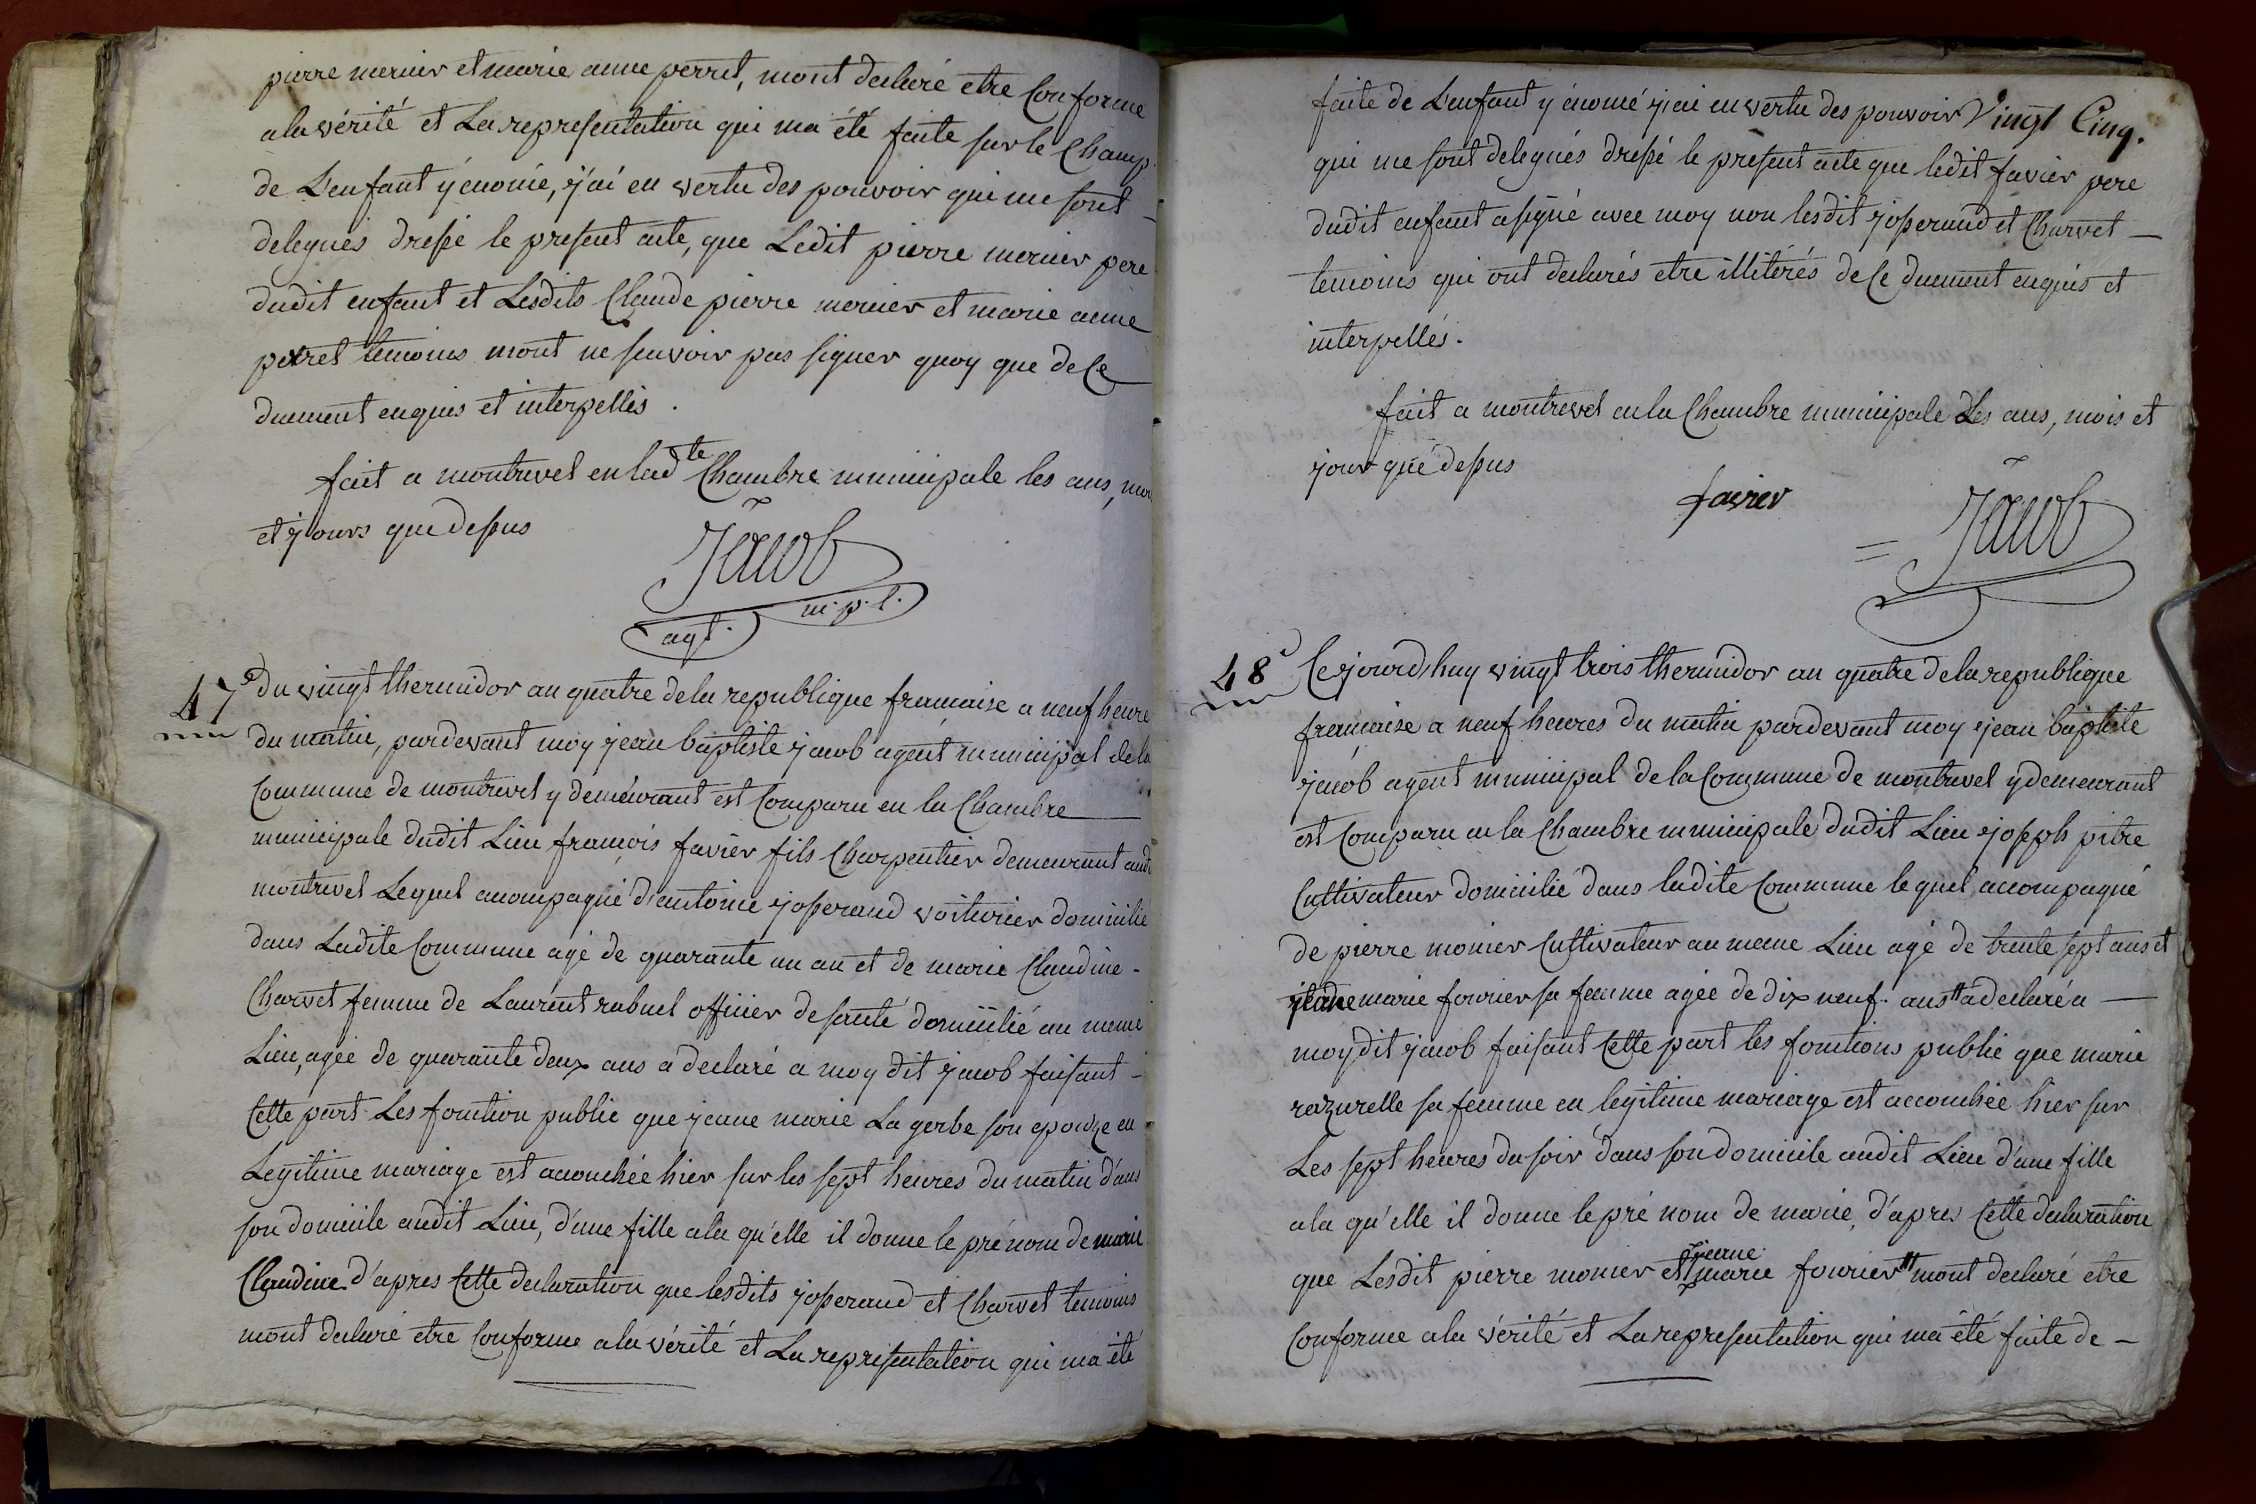 pierre mercier et marie anne perret, mont declaré etre Conforme
ala vérité et La representation qui ma été faite sur le Champ
de L'enfant y énomé, j'ai en vertu des pouvoir qui me sont
delegués dressé le present acte, que Ledit pierre mercier pere
dudit enfant et Lesdits Claude pierre mercier et marie anne
perret temoins mont ne scavoir pas signer quoy que de Ce
dument enquis et interpellés.
fait a montrevel en lad te Chambre municipale les ans, moi
et jours que dessus
Jacob
agt. m.p.l.
47e du vingt thermidor an quatre de la republique francaise a neuf heure
du matin, pardevant moy jean baptiste jacob agent municipal dela
Commune de montrevel y demeurant est Comparu en la Chambre
municipale dudit Lieu francois favier fils Charpentier demeurant audi
montrevel Lequel acompagné d'antoine josserand voiturier domicilié
dans Ladite Commune agé de quarante un an et de marie Claudine -
Charvet femme de Laurent rabuel officier de santé domicilié au meme
Lieu, agée de quarante deux ans a declaré a moy dit jacob faisant -
Cette part Les fonction public que jeane marie La gerbe son epouze en
Legitime mariage est acouchée hier sur les sept heures du matin d'ans
son domicile audit Lieu, d'une fille ala qu'elle il donne le prénom de marie
Claudine d'apres Cette declaration que lesdits josserand et Charvet temoins
mont declaré etre Conforme ala vérité et La representation qui ma été
faite de L'enfant y énomé j'ai en vertu des pouvoir Vingt Cinq.
qui me sont delegués dressé le present acte que ledit favier pere
dudit enfant a signé avec moy non lesdit josserand et Charvet —
temoins qui ont declarés etre illitérés de Ce dument enquis et
interpellés.
fait a montrevel en la Chambre municipale Les ans, mois et
jour que dessus
favier
Jacob
48e Cejourd'huy vingt trois thermidor an quatre dela republique
francaise a neuf heures du matin pardevant moy jean baptiste
jacob agent municipal de la Commune de montrevel y demeurant
est Comparu en la Chambre municipale dudit Lieu joseph pitre
Cultivateur domicilié dans ladite Commune lequel accompagné
de pierre monier Cultivateur au meme Lieu agé de trente sept ans et
jeane marie fourier sa femme agée de dix neuf ans a declaré a —
moy dit jacob faisant Cette part les fonctions public que marie
razurelle sa femme en legitime mariage est accouchée hier sur
Les sept heures du soir dans son domicile audit Lieu d'une fille
ala qu'elle il donne le pré nom de marie, d'apres Cette declaration
que Lesdit pierre monier et jeane marie fourier mont declaré etre
Conforme ala vérité et La representation qui ma été faite de —